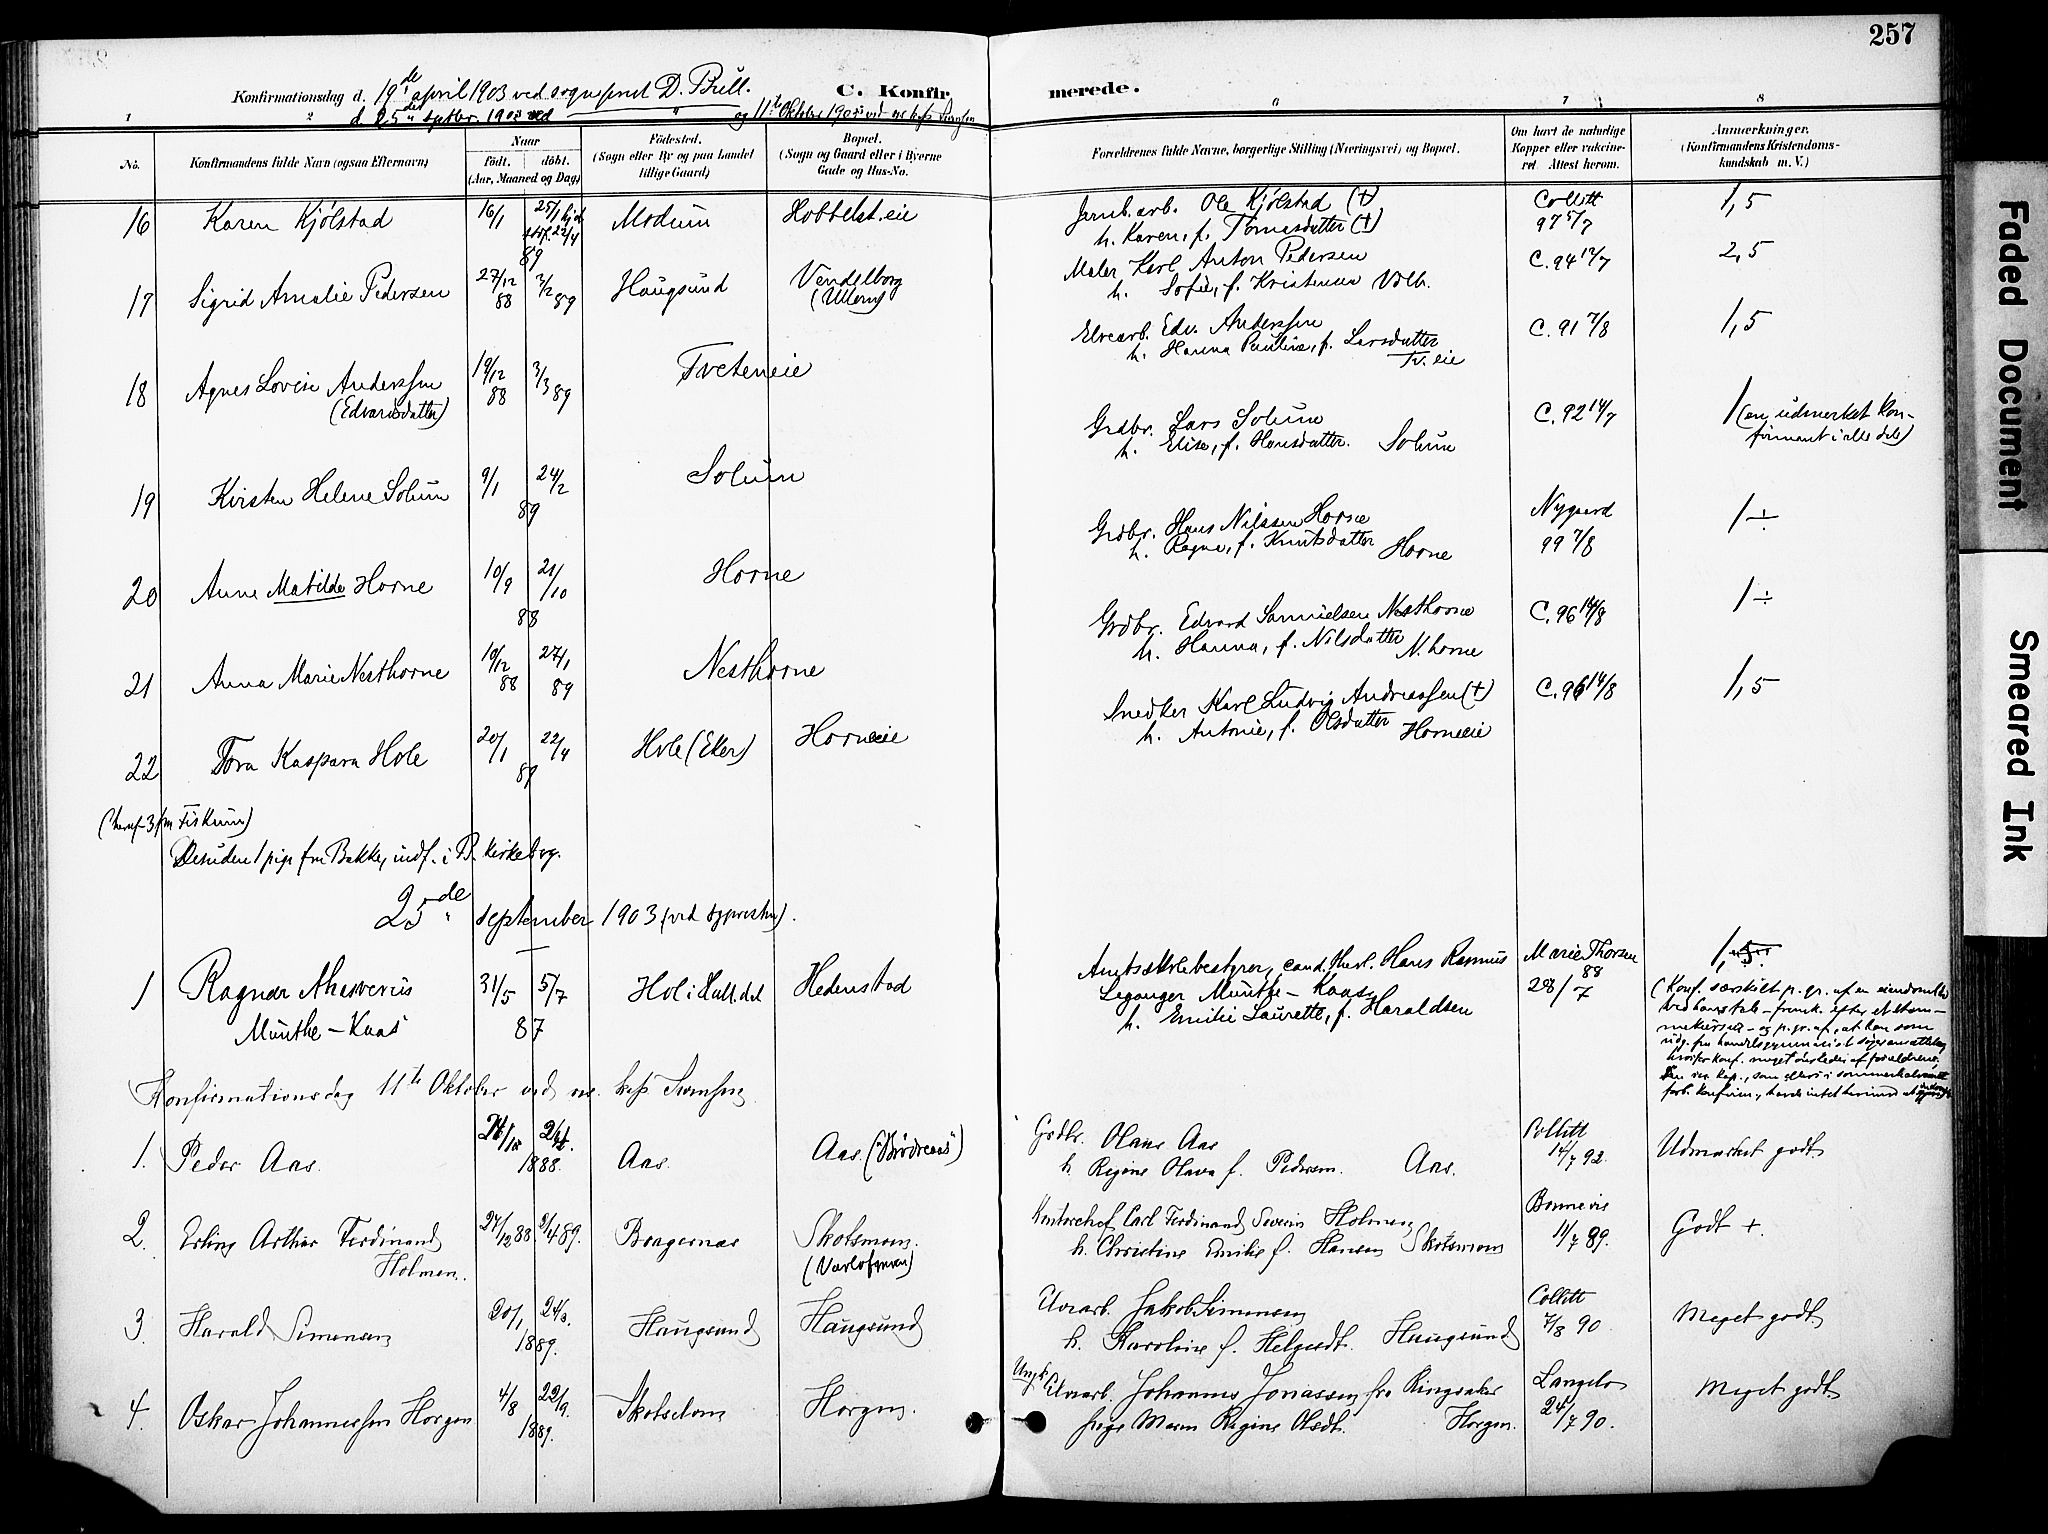 257
Konfirmationsdag d. 19de april 1903 ved sogneprest D. Brill.
C. Konfirmerede.
d 25de septbr. 1903 ved " og 11te Oktober 1903 ved
1 2 6 7 8
No.
Konfirmandens fulde Navn (ogsaa Efternavn)
Naar
født. døbt.
(Aar, Maaned og Dag)
Fødested.
(Sogn eller By og paa Landet
tillige Gaard)
Bopæl.
(Sogn og Gaard eller i Byerne
Gade og Hus-No.
Forældrenes fulde Navne, borgerlige Stilling (Næringsvei) og Bopæl.
Om havt de naturlige
Kopper eller vaccine-
ret. Attest herom.
Anmærkninger.
(Konfirmandens Kristendoms-
kundskab m. V.)
16 Karen Kjølstad 16/1 25/1 hjd. 22/4 89 Modum Hobbelst.eie
Jernb.arb. Ole Kjølstad (†)
h. Karen, f. Tomasdatter (†)
Collett 97 5/7 1,5
17 Sigrid Amalie Pedersen 27/12 88 3/2 89 Haugsund Vendelborg (Ullern)
Maler Karl Anton Pedersen
h. Sofie, f. Kristensen Vdlb.
C. 94 12/7 2,5
18 Agnes Lovise Anderssen (Edvardsdatter) 19/12 88 3/3 89 Tveteneie
Elvearb. Edv. Anderssen
h. Hanna Pauline, f. Larsdatter
Tv. eie
C. 91 7/8 1,5
19 Kirsten Helene Solum 9/1 24/2 89 Solum
Grdbr. Lars Solum
h. Elise, f. Hansdatter. Solum
C. 92 14/7 1 (en udmerket kon-
firmant i alle dele)
20 Anne Matilde Horne 10/9 21/10 88 Horne
Grdbr. Hans Nilssen Horne
h. Ragne, f. Knutsdatter Horne
Nygaard 99 7/8 1 ÷
21 Anna Marie Nesthorne 10/12 88 27/1 89 Nesthorne
Grdbr. Edvard Samuelsen Nesthorne
h. Hanna, f. Nilsdatter N. horne
C. 96 14/8 1 ÷
22 Tora Kaspara Hole 20/1 22/4 89 Hole (Eker) Horneeie
Snedker Karl Ludvig Andreassen (†)
h. Antonie, f. Olsdatter Horneeie
C. 96 14/8 1,5
(heraf 3 fra Fiskum)
Desuden 1 pige fra Bakke, indf. i B. kirkebog.
25de september 1903 (ved sogneprsten).
1 Ragnar Ahasverus Munthe-Kaas 31/5 5/7 87 Hol i Hall.del Hedenstad
Amtsskolebestyrer, cand. theol. Hans Rasmus
Leganger Munthe-Kaas
h. Emilie Laurette, f. Haraldsen
Marie Thorsen 88 28/7
1,5
(Konf. særskilt p. gr. af en eiendomm.
Konfirmationsdag 11te Oktober ved
1. Peder Aas. 1888. Aas. Aas. ("Brødreaas")
Grdbr. Olaus Aas
h. Regine Olava f. Pedersen. Aas.
Collett 14/7 92. Udmærket godt
2. Erling Arthur Ferdinand Holmen. 27/12 88 2/4 89. Bragernæs Skotsmoen. (Varlofgaven)
Kontorchef Carl Ferdinand Severin Holmen
h. Christine Emilie f. Hansen Skotsmoen
Bonnevie 11/7 89. Godt +.
3. Harald Simensen 20/1 24/3. 1889. Haugsund Haugsund
Elvearb. Jakob Simensen
h. Karoline f. Helgesdt. Haugsund
Collett 7/8 90 Meget godt
4. Oskar Johannessen Horgen 4/8 22/9. 1889. Skotselven Horgen.
Ungk. Elvearb. Johannes Jonassen fra Ringsaker
pige Maren Regine Olsdt. Horgen.
Langelo 24/7 90. Meget godt.
Faded Document
Smeared Ink